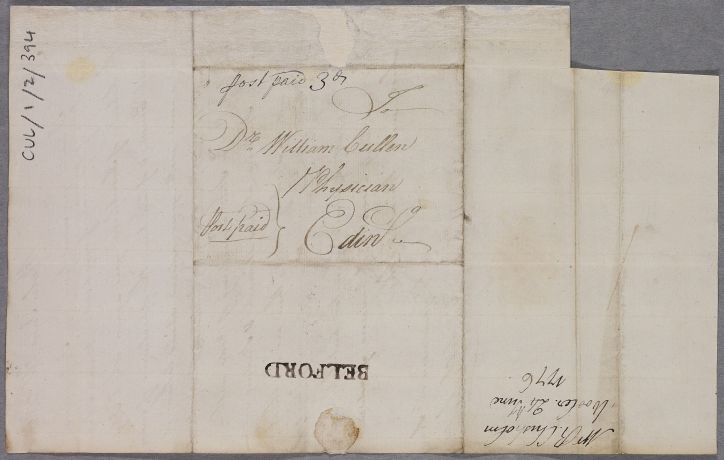 CUL/1/2/394
post paid 3d
To
Dr. William Cullen
Physician
post paid
Edinr.
BELFORD
Mr R. Chisholm
Wooler 24 June
1776